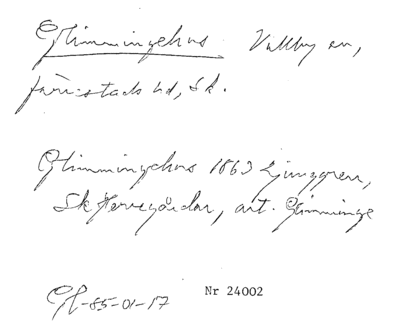 Glimmingehus Vallby sn,
Järrestads hd, Sk.
Glimmingehus 1863 Ljunggren,
Sk Herregårdar, art. Glimminge
GH-85-01-17 Nr 24002